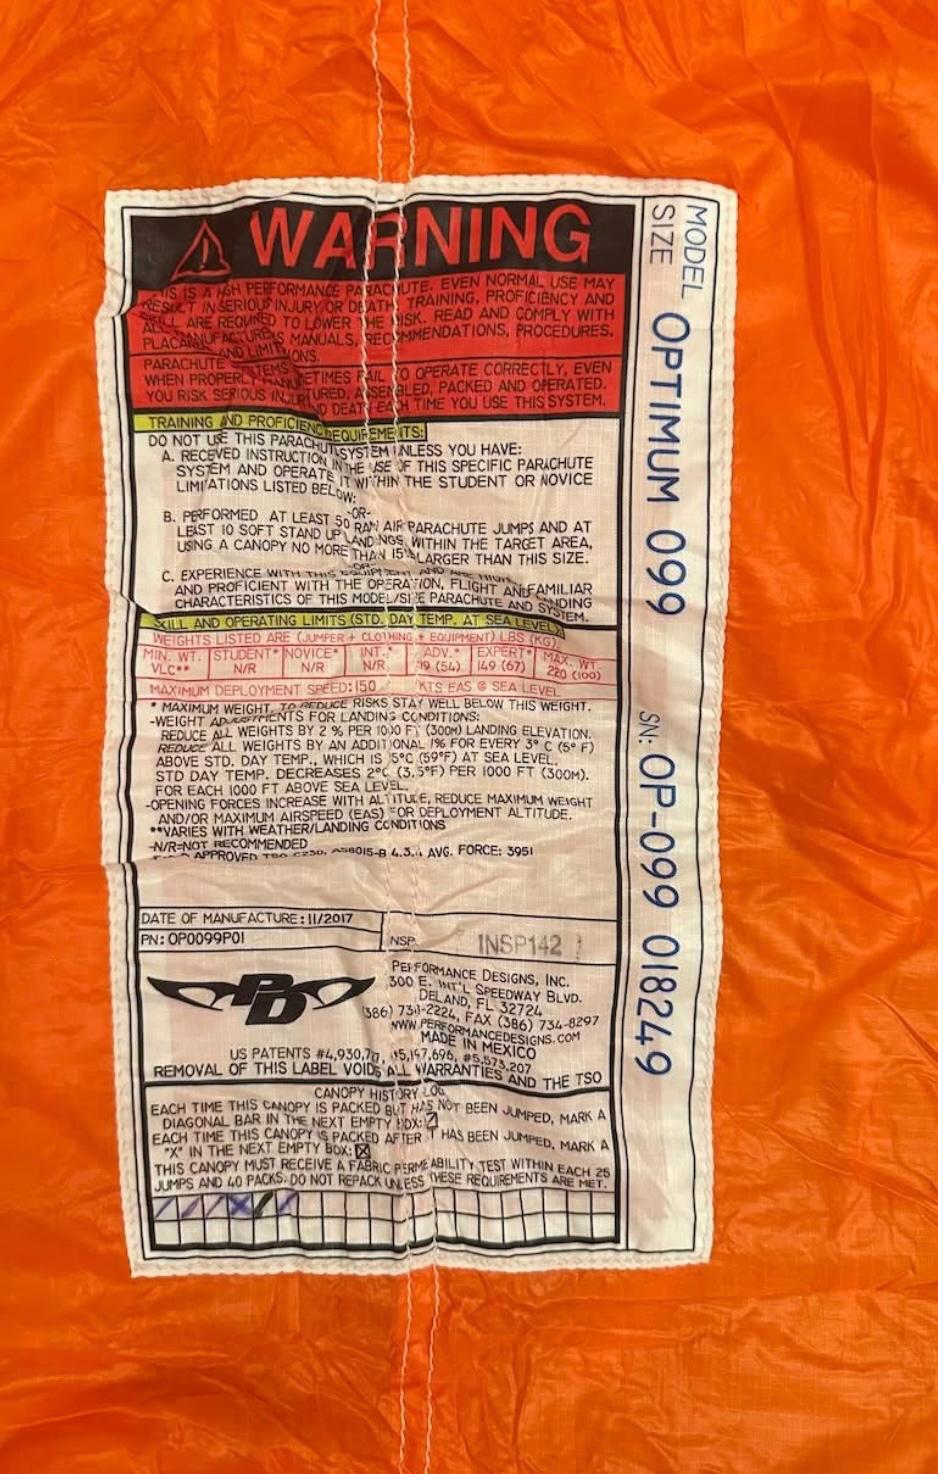 WARNING
THIS IS A HIGH PERFORMANCE PARACHUTE. EVEN NORMAL USE MAY
RESULT IN SERIOUS INJURY OR DEATH. TRAINING, PROFICIENCY AND
SKILL ARE REQUIRED TO LOWER THE RISK. READ AND COMPLY WITH
ALL MANUFACTURERS MANUALS, RECOMMENDATIONS, PROCEDURES,
PLACARDS AND LIMITATIONS.
PARACHUTE SYSTEMS SOMETIMES FAIL TO OPERATE CORRECTLY, EVEN
WHEN PROPERLY MANUFACTURED, ASSEMBLED, PACKED AND OPERATED.
YOU RISK SERIOUS INJURY AND DEATH EACH TIME YOU USE THIS SYSTEM.
TRAINING AND PROFICIENCY REQUIREMENTS:
DO NOT USE THIS PARACHUTE SYSTEM UNLESS YOU HAVE:
A. RECEIVED INSTRUCTION IN THE USE OF THIS SPECIFIC PARACHUTE
SYSTEM AND OPERATE IT WITHIN THE STUDENT OR NOVICE
LIMITATIONS LISTED BELOW:
-OR-
B. PERFORMED AT LEAST 50 RAM AIR PARACHUTE JUMPS AND AT
LEAST 10 SOFT STAND UP LANDINGS WITHIN THE TARGET AREA,
USING A CANOPY NO MORE THAN 15% LARGER THAN THIS SIZE.
-OR-
C. EXPERIENCE WITH THIS EQUIPMENT AND ARE HIGHLY FAMILIAR
AND PROFICIENT WITH THE OPERATION, FLIGHT AND LANDING
CHARACTERISTICS OF THIS MODEL/SIZE PARACHUTE AND SYSTEM.
SKILL AND OPERATING LIMITS (STD. DAY TEMP. AT SEA LEVEL)
WEIGHTS LISTED ARE (JUMPER + CLOTHING + EQUIPMENT) LBS (KG)
MIN. WT. STUDENT* NOVICE* INT.* ADV.* EXPERT* MAX. WT.
VLC** N/R N/R N/R 119 (54) 149 (67) 220 (100)
MAXIMUM DEPLOYMENT SPEED: 150 KTS EAS @ SEA LEVEL
* MAXIMUM WEIGHT, TO REDUCE RISKS STAY WELL BELOW THIS WEIGHT.
-WEIGHT ADJUSTMENTS FOR LANDING CONDITIONS:
REDUCE ALL WEIGHTS BY 2 % PER 1000 FT (300M) LANDING ELEVATION.
REDUCE ALL WEIGHTS BY AN ADDITIONAL 1% FOR EVERY 3° C (5° F)
ABOVE STD. DAY TEMP., WHICH IS 15°C (59°F) AT SEA LEVEL.
STD DAY TEMP. DECREASES 2°C (3.5°F) PER 1000 FT (300M).
FOR EACH 1000 FT ABOVE SEA LEVEL.
-OPENING FORCES INCREASE WITH ALTITUDE, REDUCE MAXIMUM WEIGHT
AND/OR MAXIMUM AIRSPEED (EAS) FOR DEPLOYMENT ALTITUDE.
**VARIES WITH WEATHER/LANDING CONDITIONS
-N/R=NOT RECOMMENDED
APPROVED TSO C23D, AS8015-B 4.3.4 AVG. FORCE: 3951
DATE OF MANUFACTURE: 11/2017
PN: OP0099P01 INSP. INSP142
PD
PERFORMANCE DESIGNS, INC.
300 E. INT'L SPEEDWAY BLVD.
DELAND, FL 32724
(386) 734-2224, FAX (386) 734-8297
WWW.PERFORMANCEDESIGNS.COM
MADE IN MEXICO
US PATENTS #4,930,7, #5,197,696, #5,573,207
REMOVAL OF THIS LABEL VOIDS ALL WARRANTIES AND THE TSO
CANOPY HISTORY LOG
EACH TIME THIS CANOPY IS PACKED BUT HAS NOT BEEN JUMPED, MARK A
DIAGONAL BAR IN THE NEXT EMPTY BOX:
EACH TIME THIS CANOPY IS PACKED AFTER IT HAS BEEN JUMPED, MARK A
"X" IN THE NEXT EMPTY BOX:
THIS CANOPY MUST RECEIVE A FABRIC PERMEABILITY TEST WITHIN EACH 25
JUMPS AND 40 PACKS. DO NOT REPACK UNLESS THESE REQUIREMENTS ARE MET.
MODEL
SIZE OPTIMUM 099
SN: OP-099 018249